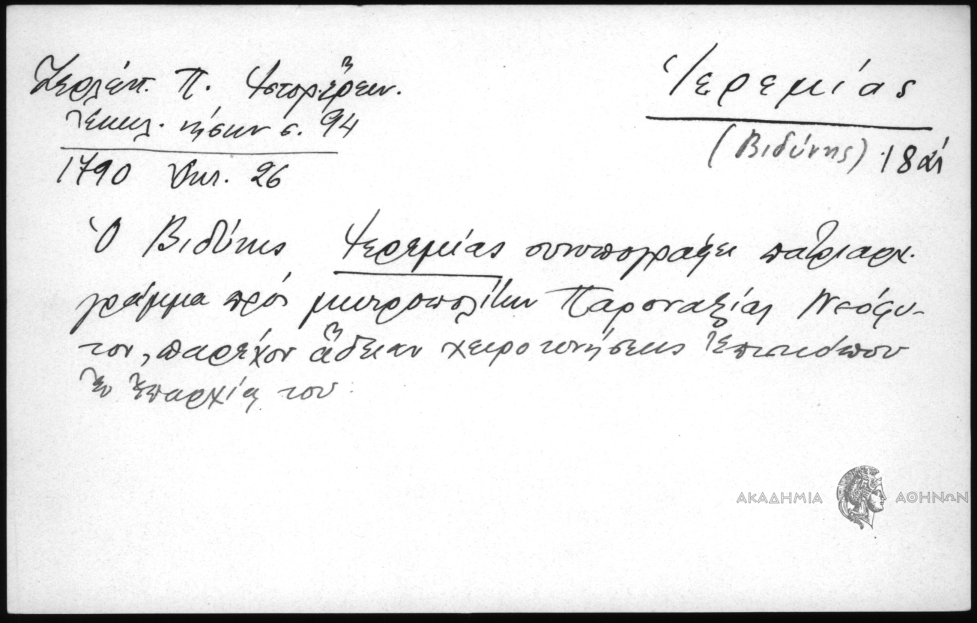 Ζερλέντ. Π. Ἱστορ. ἔρευν.
Ἐκκλ. νήσων σ. 94
1790 Ὀκτ. 26
Ἱερεμίας
(Βιδύνης) 18 αἰ
Ὁ Βιδύνης Ἱερεμίας συνυπογράφει πατριαρχ.
γράμμα πρὸς μητροπολίτην Παροναξίας Νεόφυ-
τον, παρέχον ἄδειαν χειροτονήσεως Ἐπισκόπου
ἐν Ἐπαρχίᾳ του.
ΑΚΑΔΗΜΙΑ ΑΘΗΝΩΝ